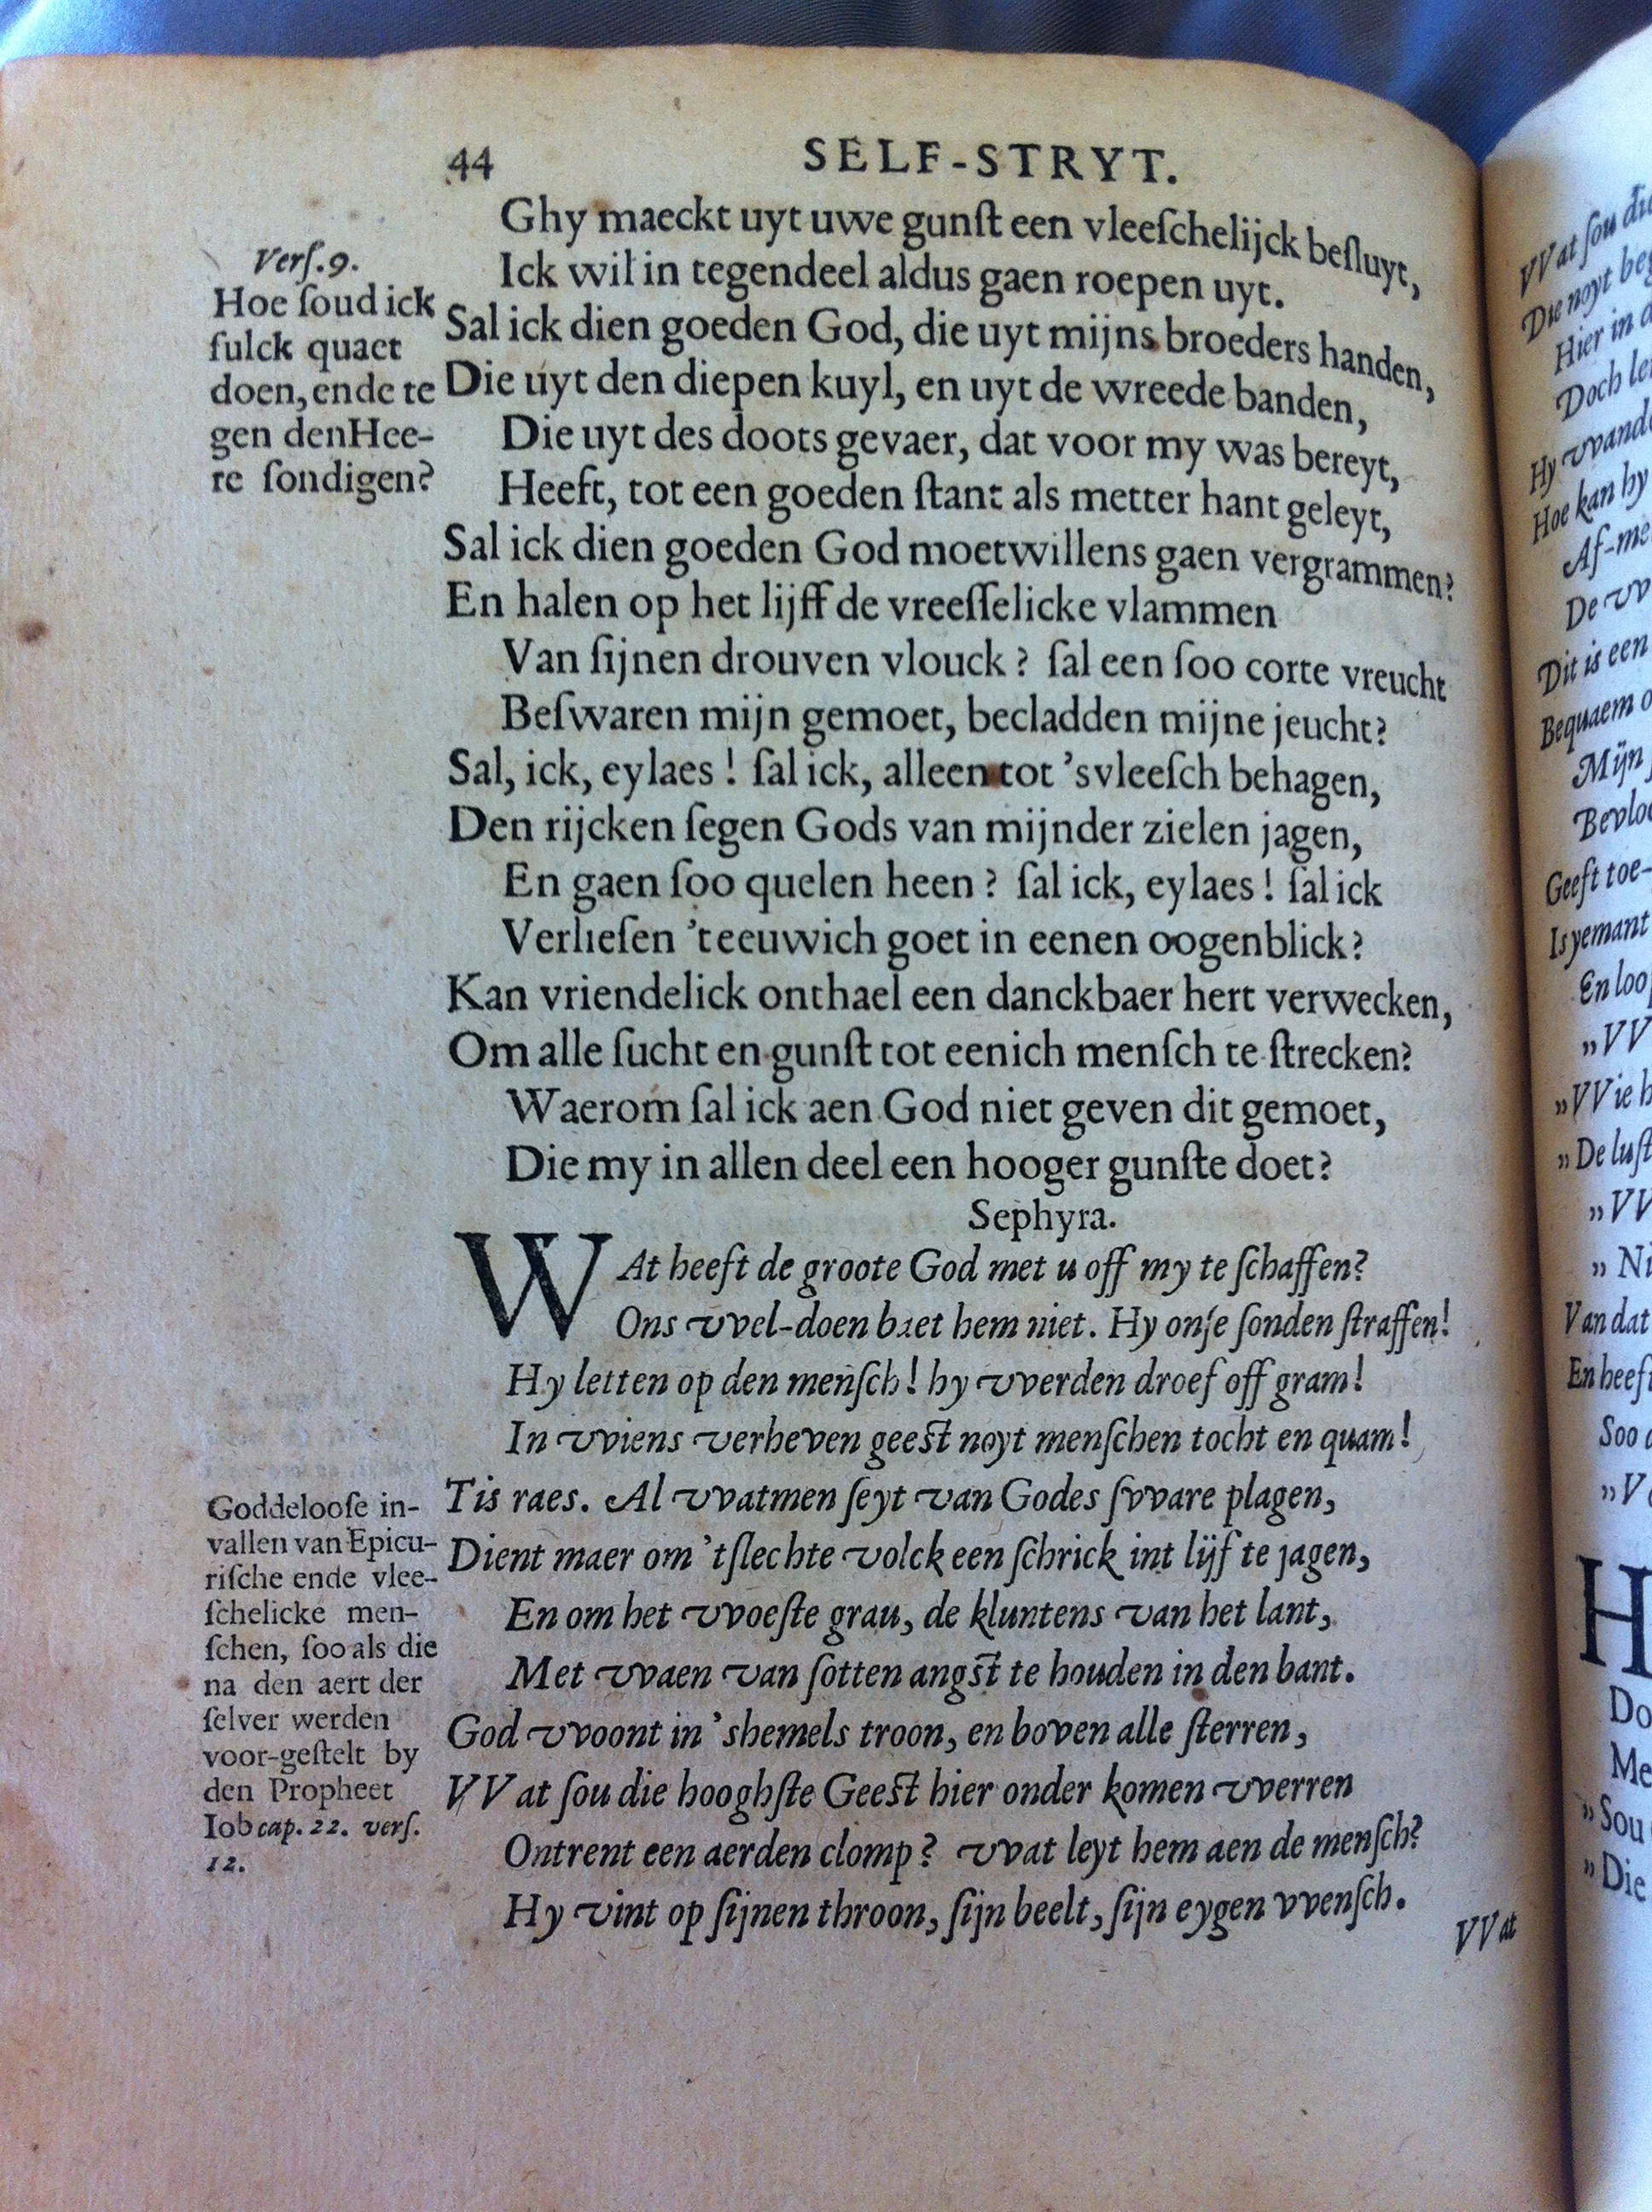 44
SELF-STRYT.
Ghy maeckt uyt uwe gunſt een vleeſchelijck beſluyt,
Ick wil in tegendeel aldus gaen roepen uyt.
Sal ick dien goeden God, die uyt mijns broeders handen,
Die uyt den diepen kuyl, en uyt de wreede banden,
Die uyt des doots gevaer, dat voor my was bereyt,
Heeft, tot een goeden ſtant als metter hant geleyt,
Sal ick dien goeden God moetwillens gaen vergrammen?
En halen op het lijff de vreeſſelicke vlammen
Van ſijnen drouven vlouck? ſal een ſoo corte vreucht
Beſwaren mijn gemoet, becladden mijne jeucht?
Sal, ick, eylaes! ſal ick, alleen tot 'svleeſch behagen,
Den rijcken ſegen Gods van mijnder zielen jagen,
En gaen ſoo quelen heen? ſal ick, eylaes! ſal ick
Verlieſen 'teeuwich goet in eenen oogenblick?
Kan vriendelick onthael een danckbaer hert verwecken,
Om alle ſucht en gunſt tot eenich menſch te ſtrecken?
Waerom ſal ick aen God niet geven dit gemoet,
Die my in allen deel een hooger gunſte doet?
Sephyra.
WAt heeft de groote God met u off my te ſchaffen?
Ons vvel-doen baet hem niet. Hy onſe ſonden ſtraffen!
Hy letten op den menſch! hy vverden droef off gram!
In vviens verheven geeſt noyt menſchen tocht en quam!
Tis raes. Al vvatmen ſeyt van Godes ſvvare plagen,
Dient maer om 'tſlechte volck een ſchrick int lijf te jagen,
En om het vvoeſte grau, de kluntens van het lant,
Met vvaen van ſotten angſt te houden in den bant.
God vvoont in 'shemels troon, en boven alle ſterren,
VVat ſou die hooghſte Geeſt hier onder komen vverren
Ontrent een aerden clomp? vvat leyt hem aen de menſch?
Hy vint op ſijnen throon, ſijn beelt, ſijn eygen vvenſch.
VVat
Verſ. 9.
Hoe ſoud ick
ſulck quaet
doen, ende te
gen denHee-
re ſondigen?
Goddelooſe in-
vallen van Epicu-
riſche ende vlee-
ſchelicke men-
ſchen, ſoo als die
na den aert der
ſelver werden
voor-geſtelt by
den Propheet
Iob cap. 22. verſ.
12.
VVat ſou
Die noyt
Hier in
Doch
Hy
Hoe kan hy
Af-
De
Dit is een
Bequaem
Mijn
Geeft toe-
Is yemant
En
„VVie
„De
Van dat
En
Soo
H
Do
Me
„Sou
„Die